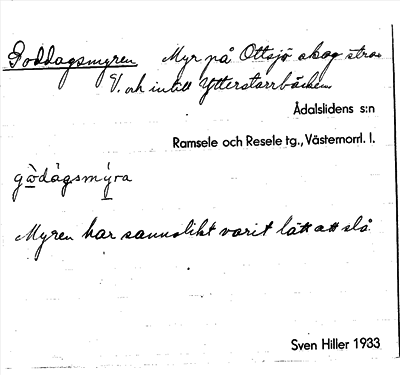 Goddagsmyren Myr på Ottsjö skog strax
V. och intill Ytterstarrbäcken
Ådalslidens s:n
Ramsele och Resele tg., Västernorrl. l.
gòdàgsmýra
Myren har sannolikt varit lätt att slå.
Sven Hiller 1933